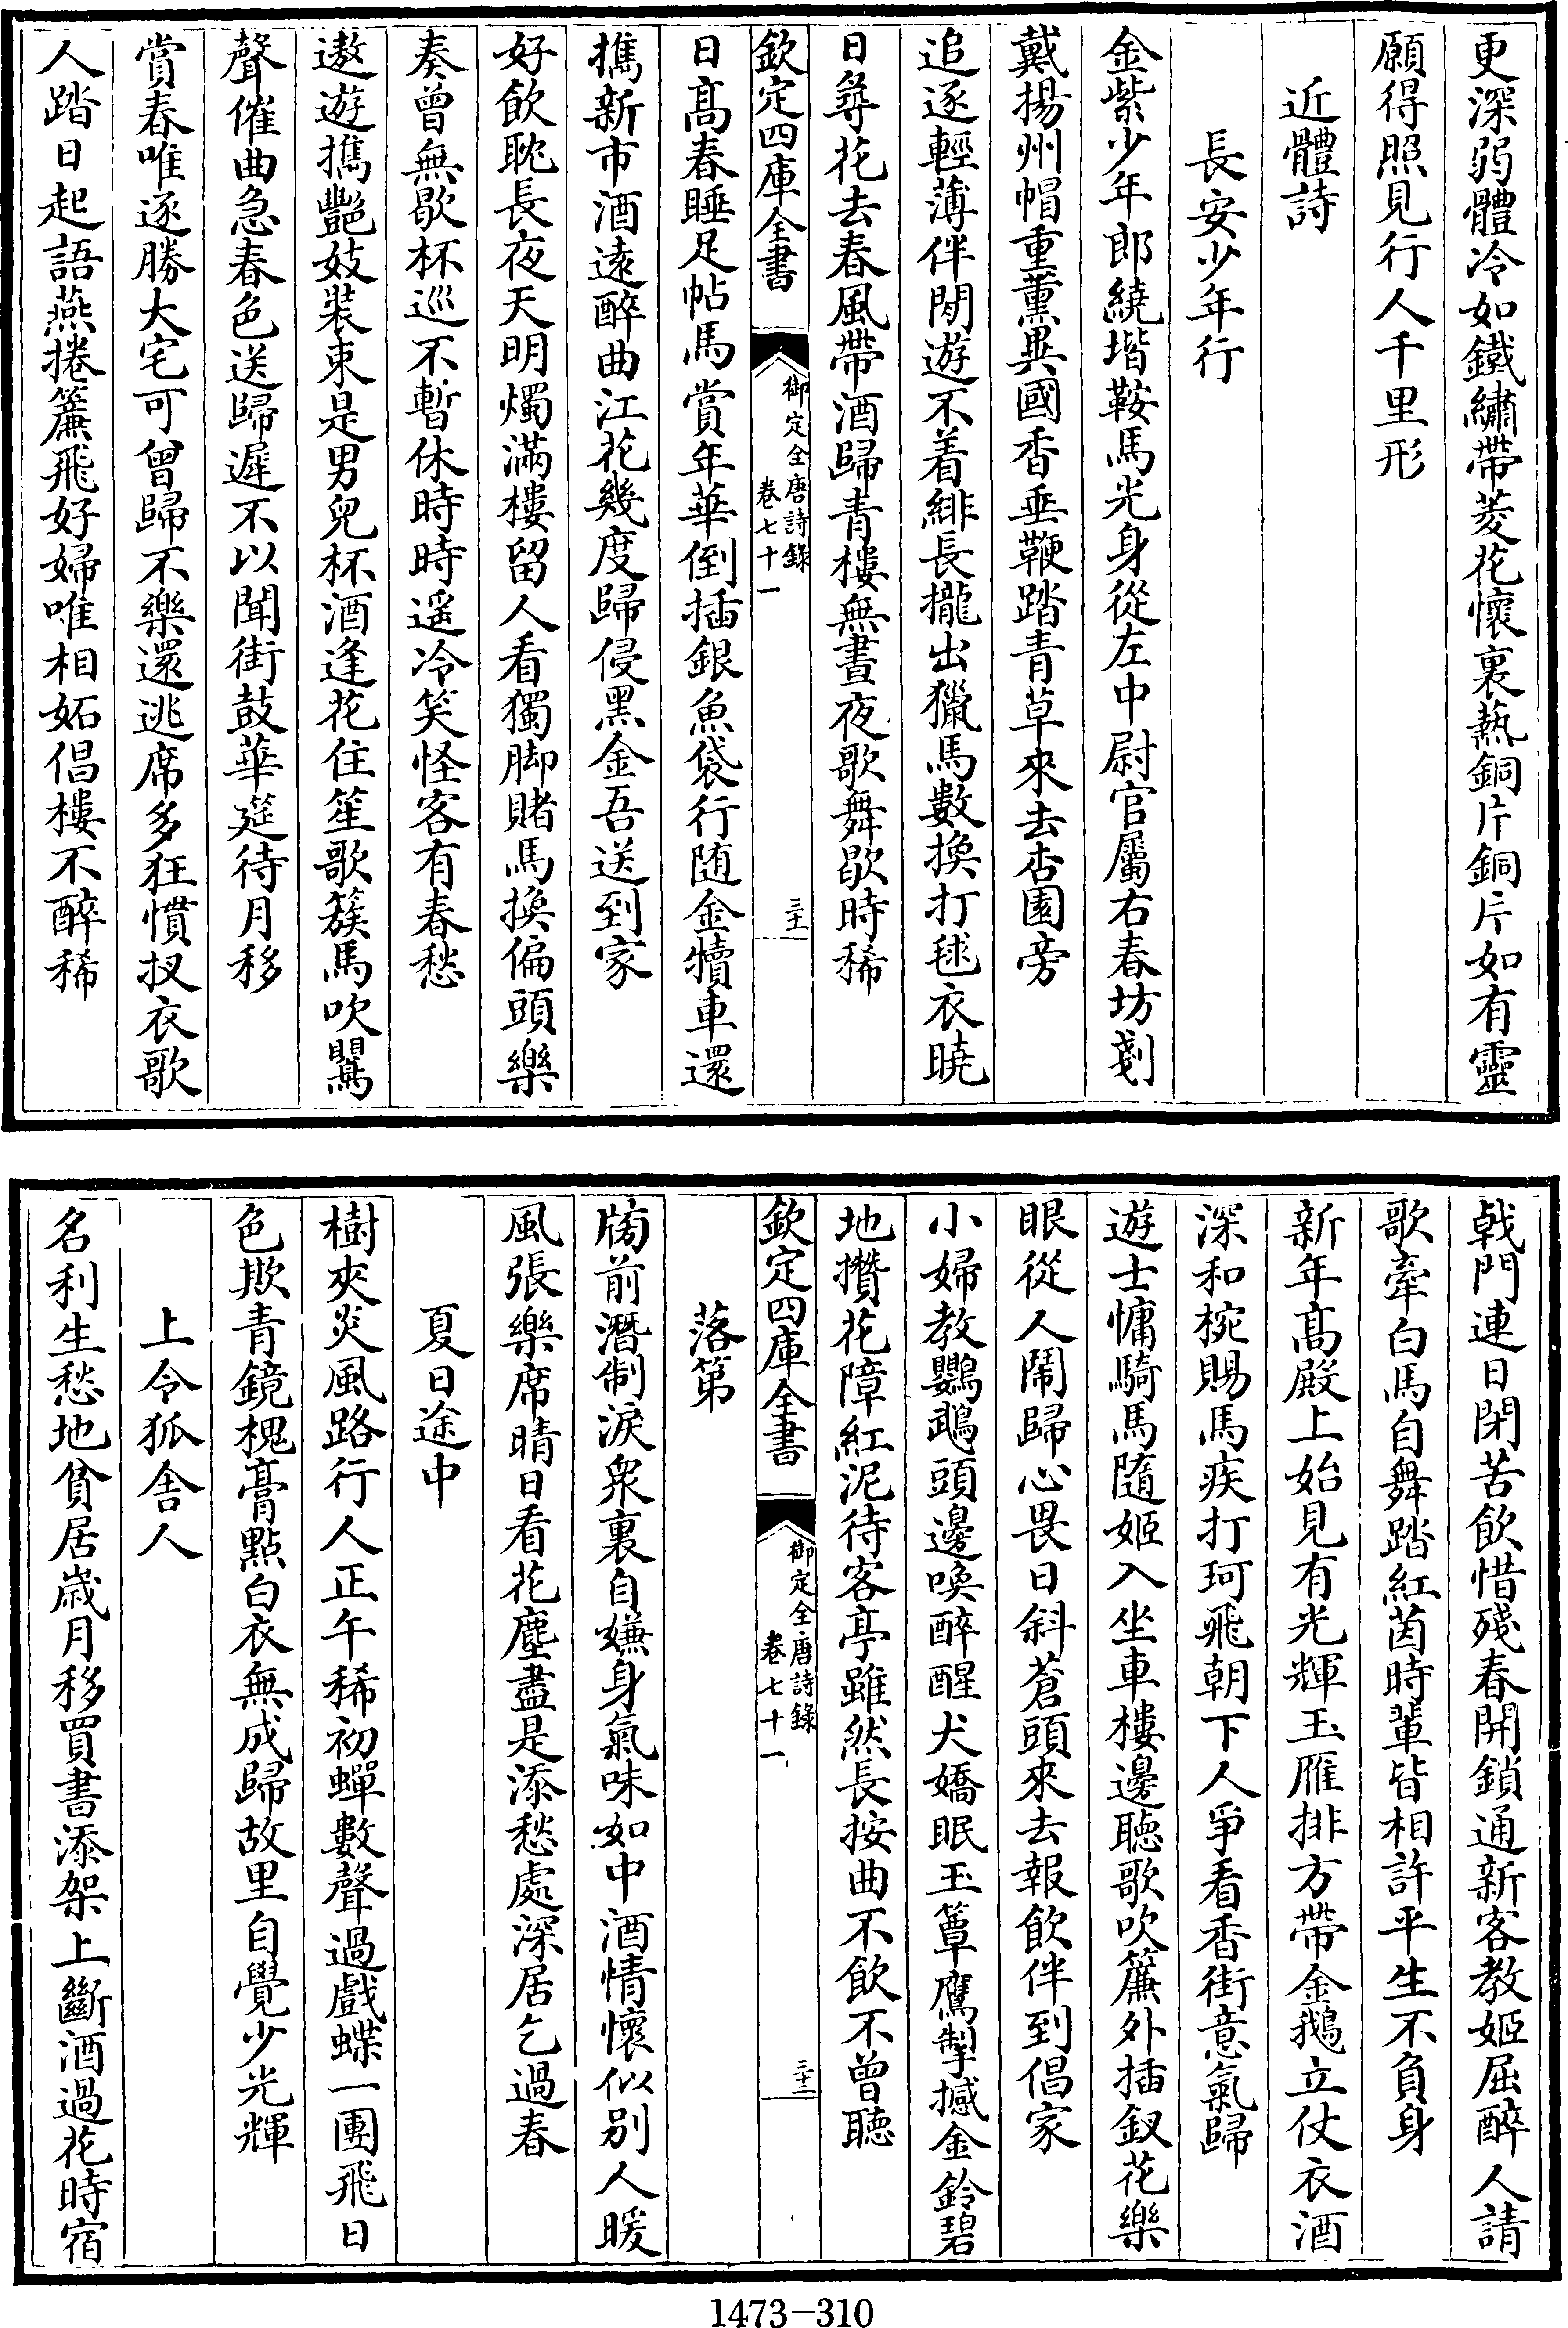 更深弱體冷如鐵繡帶菱花懷裏熱銅片銅片如有靈
願得照見行人千里形
近體詩
長安少年行
金紫少年郎繞堦鞍馬光身從左中尉官屬右春坊剗
戴揚州帽重薰異國香垂鞭踏青草來去杏園旁
追逐輕薄伴閒遊不着緋長攏出獵馬數換打毬衣曉
日尋花去春風帶酒歸青樓無晝夜歌舞歇時稀
欽定四庫全書
御定全唐詩錄
卷七十一
三十一
日髙春睡足帖馬賞年華倒插銀魚袋行随金犢車還
攜新市酒遠醉曲江花幾度歸侵黑金吾送到家
好飲耽長夜天明燭滿樓留人看獨脚賭馬換偏頭樂
奏曾無歇杯巡不暫休時時遥冷笑怪客有春愁
遨遊攜艷妓裝束是男兒杯酒逢花住笙歌簇馬吹鸎
聲催曲急春色送歸遲不以聞街鼓華筵待月移
賞春唯逐勝大宅可曾歸不樂還逃席多狂慣扠衣歌
人踏日起語燕捲簾飛好婦唯相妬倡樓不醉稀
戟門連日閉苦飲惜殘春開鎖通新客教姬屈醉人請
歌牽白馬自舞踏紅茵時輩皆相許平生不負身
新年髙殿上始見有光輝玉雁排方帶金鵝立仗衣酒
深和椀賜馬疾打珂飛朝下人爭看香街意氣歸
遊士慵騎馬隨姬入坐車樓邊聽歌吹簾外插釵花樂
眼從人鬧歸心畏日斜蒼頭來去報飲伴到倡家
小婦教鸚鵡頭邊喚醉醒犬嬌眠玉簟鷹掣撼金鈴碧
地攢花障紅泥待客亭雖然長按曲不飲不曾聽
欽定四庫全書
御定全唐詩錄
卷七十一
三十二
落第
牓前潛制淚衆裏自嫌身氣味如中酒情懷似別人暖
風張樂席晴日看花塵盡是添愁處深居乞過春
夏日途中
樹夾炎風路行人正午稀初蟬數聲過戲蝶一團飛日
色欺青鏡槐膏點白衣無成歸故里自覺少光輝
上令狐舍人
名利生愁地貧居歲月移買書添架上斷酒過花時宿
1473-310